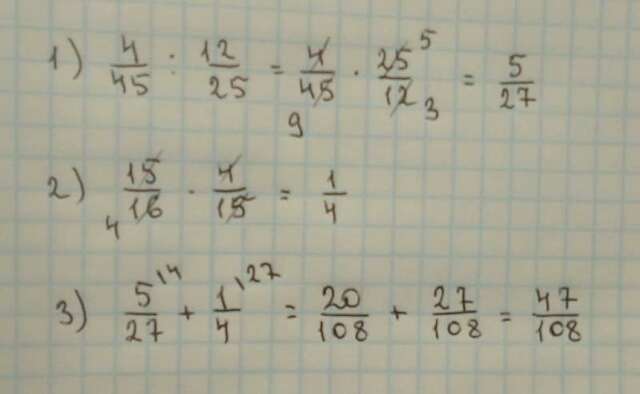 1) 4/45 : 12/25 = 4/45 · 25/12 = 5/27 (9, 5, 3)
2) 15/16 · 4/15 = 1/4 (4)
3) 5/27 \4 + 1/4 \27 = 20/108 + 27/108 = 47/108